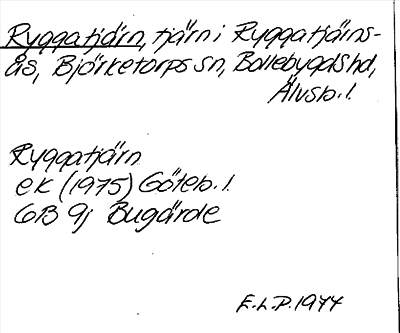 Ryggatjärn, tjärn i Ryggatjärns-
ås, Björketorps sn, Bollebygds hd,
Älvsb. l.
Ryggatjärn
ek (1975) Göteb. l.
6B 9j Bugärde
E.L.P. 1977